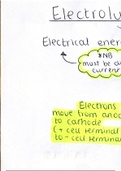 Electroly
Electrical energ
*NB
must be di
current
Electrons
move from anod
to cathode
(+ cell terminal
to - cell termina